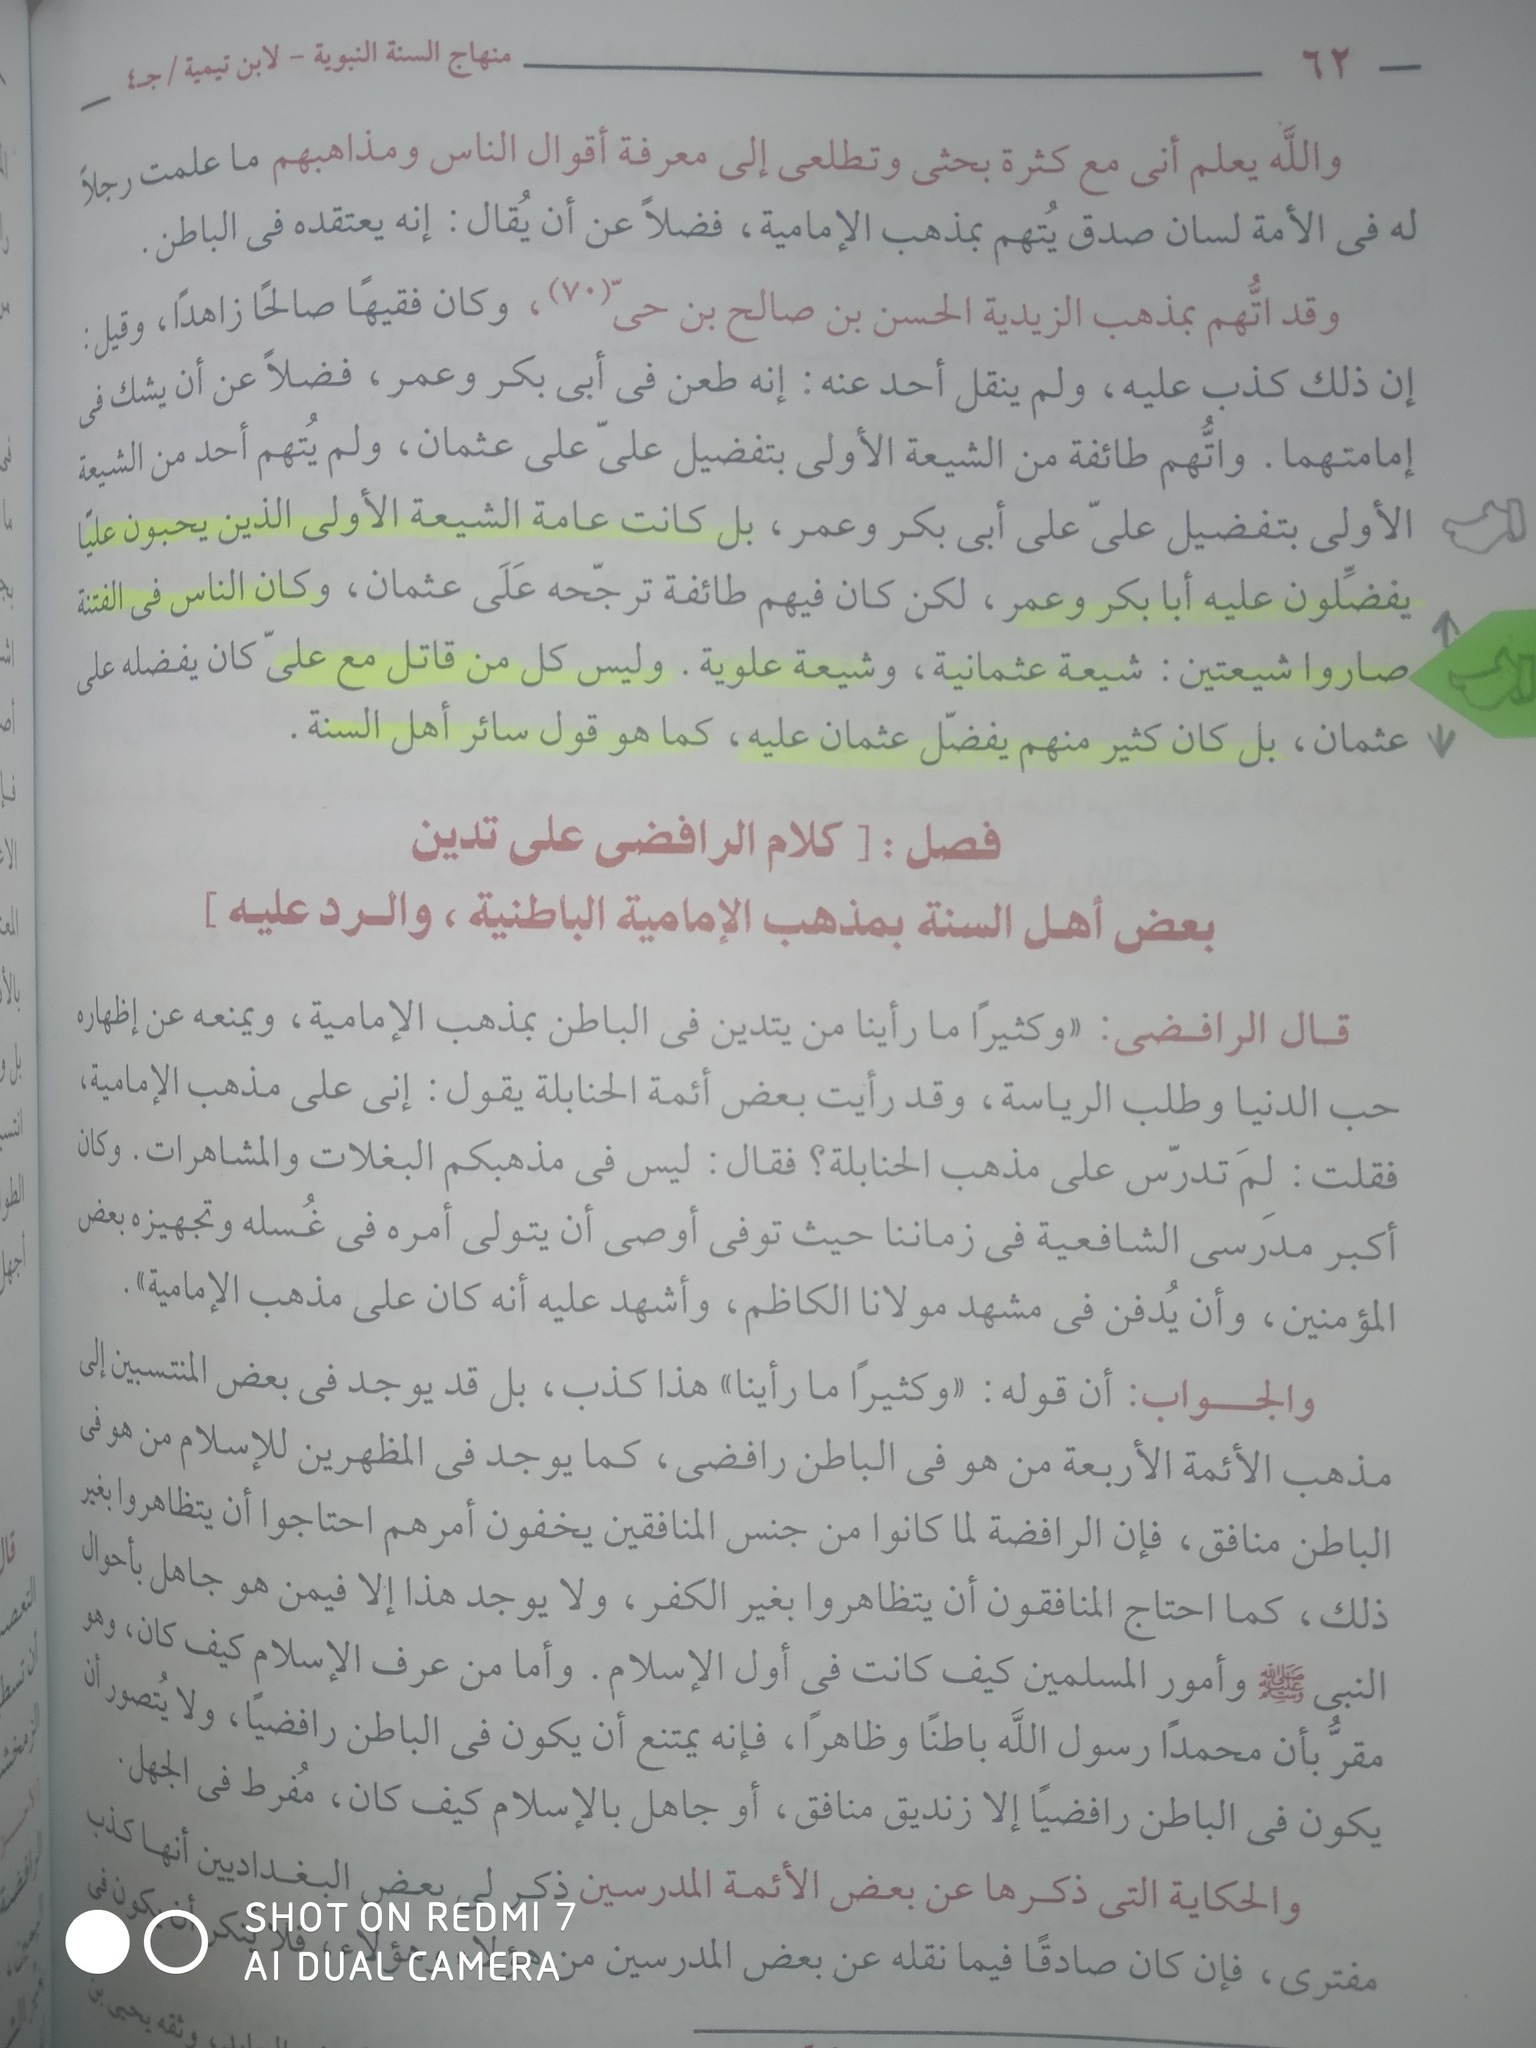 ٦٢
منهاج السنة النبوية - لابن تيمية / جـ٤
واللَّه يعلم أنى مع كثرة بحثى وتطلعى إلى معرفة أقوال الناس ومذاهبهم ما علمت رجلاً
له فى الأمة لسان صدق يُتهم بمذهب الإمامية، فضلاً عن أن يُقال: إنه يعتقده فى الباطن.
وقد اتُّهم بمذهب الزيدية الحسن بن صالح بن حىّ(٧٠)، وكان فقيهًا صالحًا زاهدًا، وقيل:
إن ذلك كذب عليه، ولم ينقل أحد عنه: إنه طعن فى أبى بكر وعمر، فضلاً عن أن يشك فى
إمامتهما. واتُّهم طائفة من الشيعة الأولى بتفضيل علىّ على عثمان، ولم يُتهم أحد من الشيعة
الأولى بتفضيل علىّ على أبى بكر وعمر، بل كانت عامة الشيعة الأولى الذين يحبون عليًا
يفضِّلون عليه أبا بكر وعمر، لكن كان فيهم طائفة ترجّحه عَلَى عثمان، وكان الناس فى الفتنة
صاروا شيعتين: شيعة عثمانية، وشيعة علوية. وليس كل من قاتل مع علىّ كان يفضله على
عثمان، بل كان كثير منهم يفضّل عثمان عليه، كما هو قول سائر أهل السنة.
فصل: [ كلام الرافضى على تدين
بعض أهل السنة بمذهب الإمامية الباطنية، والرد عليه ]
قال الرافضى: «وكثيرًا ما رأينا من يتدين فى الباطن بمذهب الإمامية، ويمنعه عن إظهاره
حب الدنيا وطلب الرياسة، وقد رأيت بعض أئمة الحنابلة يقول: إنى على مذهب الإمامية،
فقلت: لِمَ تدرّس على مذهب الحنابلة؟ فقال: ليس فى مذهبكم البغلات والمشاهرات. وكان
أكبر مدَرسى الشافعية فى زماننا حيث توفى أوصى أن يتولى أمره فى غُسله وتجهيزه بعض
المؤمنين، وأن يُدفن فى مشهد مولانا الكاظم، وأشهد عليه أنه كان على مذهب الإمامية».
والجواب: أن قوله: «وكثيرًا ما رأينا» هذا كذب، بل قد يوجد فى بعض المنتسبين إلى
مذهب الأئمة الأربعة من هو فى الباطن رافضى، كما يوجد فى المظهرين للإسلام من هو فى
الباطن منافق، فإن الرافضة لما كانوا من جنس المنافقين يخفون أمرهم احتاجوا أن يتظاهروا بغير
ذلك، كما احتاج المنافقون أن يتظاهروا بغير الكفر، ولا يوجد هذا إلا فيمن هو جاهل بأحوال
النبى ﷺ وأمور المسلمين كيف كانت فى أول الإسلام. وأما من عرف الإسلام كيف كان، وهو
مقرُّ بأن محمدًا رسول اللَّه باطنًا وظاهرًا، فإنه يمتنع أن يكون فى الباطن رافضيًا، ولا يُتصور أن
يكون فى الباطن رافضيًا إلا زنديق منافق، أو جاهل بالإسلام كيف كان، مُفرط فى الجهل.
والحكاية التى ذكرها عن بعض الأئمة المدرسين ذكر لى بعض البغداديين أنها كذب
مفترى، فإن كان صادقًا فيما نقله عن بعض المدرسين من هؤلاء وهؤلاء، فلا ينكر أن يكون فى
SHOT ON REDMI 7
AI DUAL CAMERA